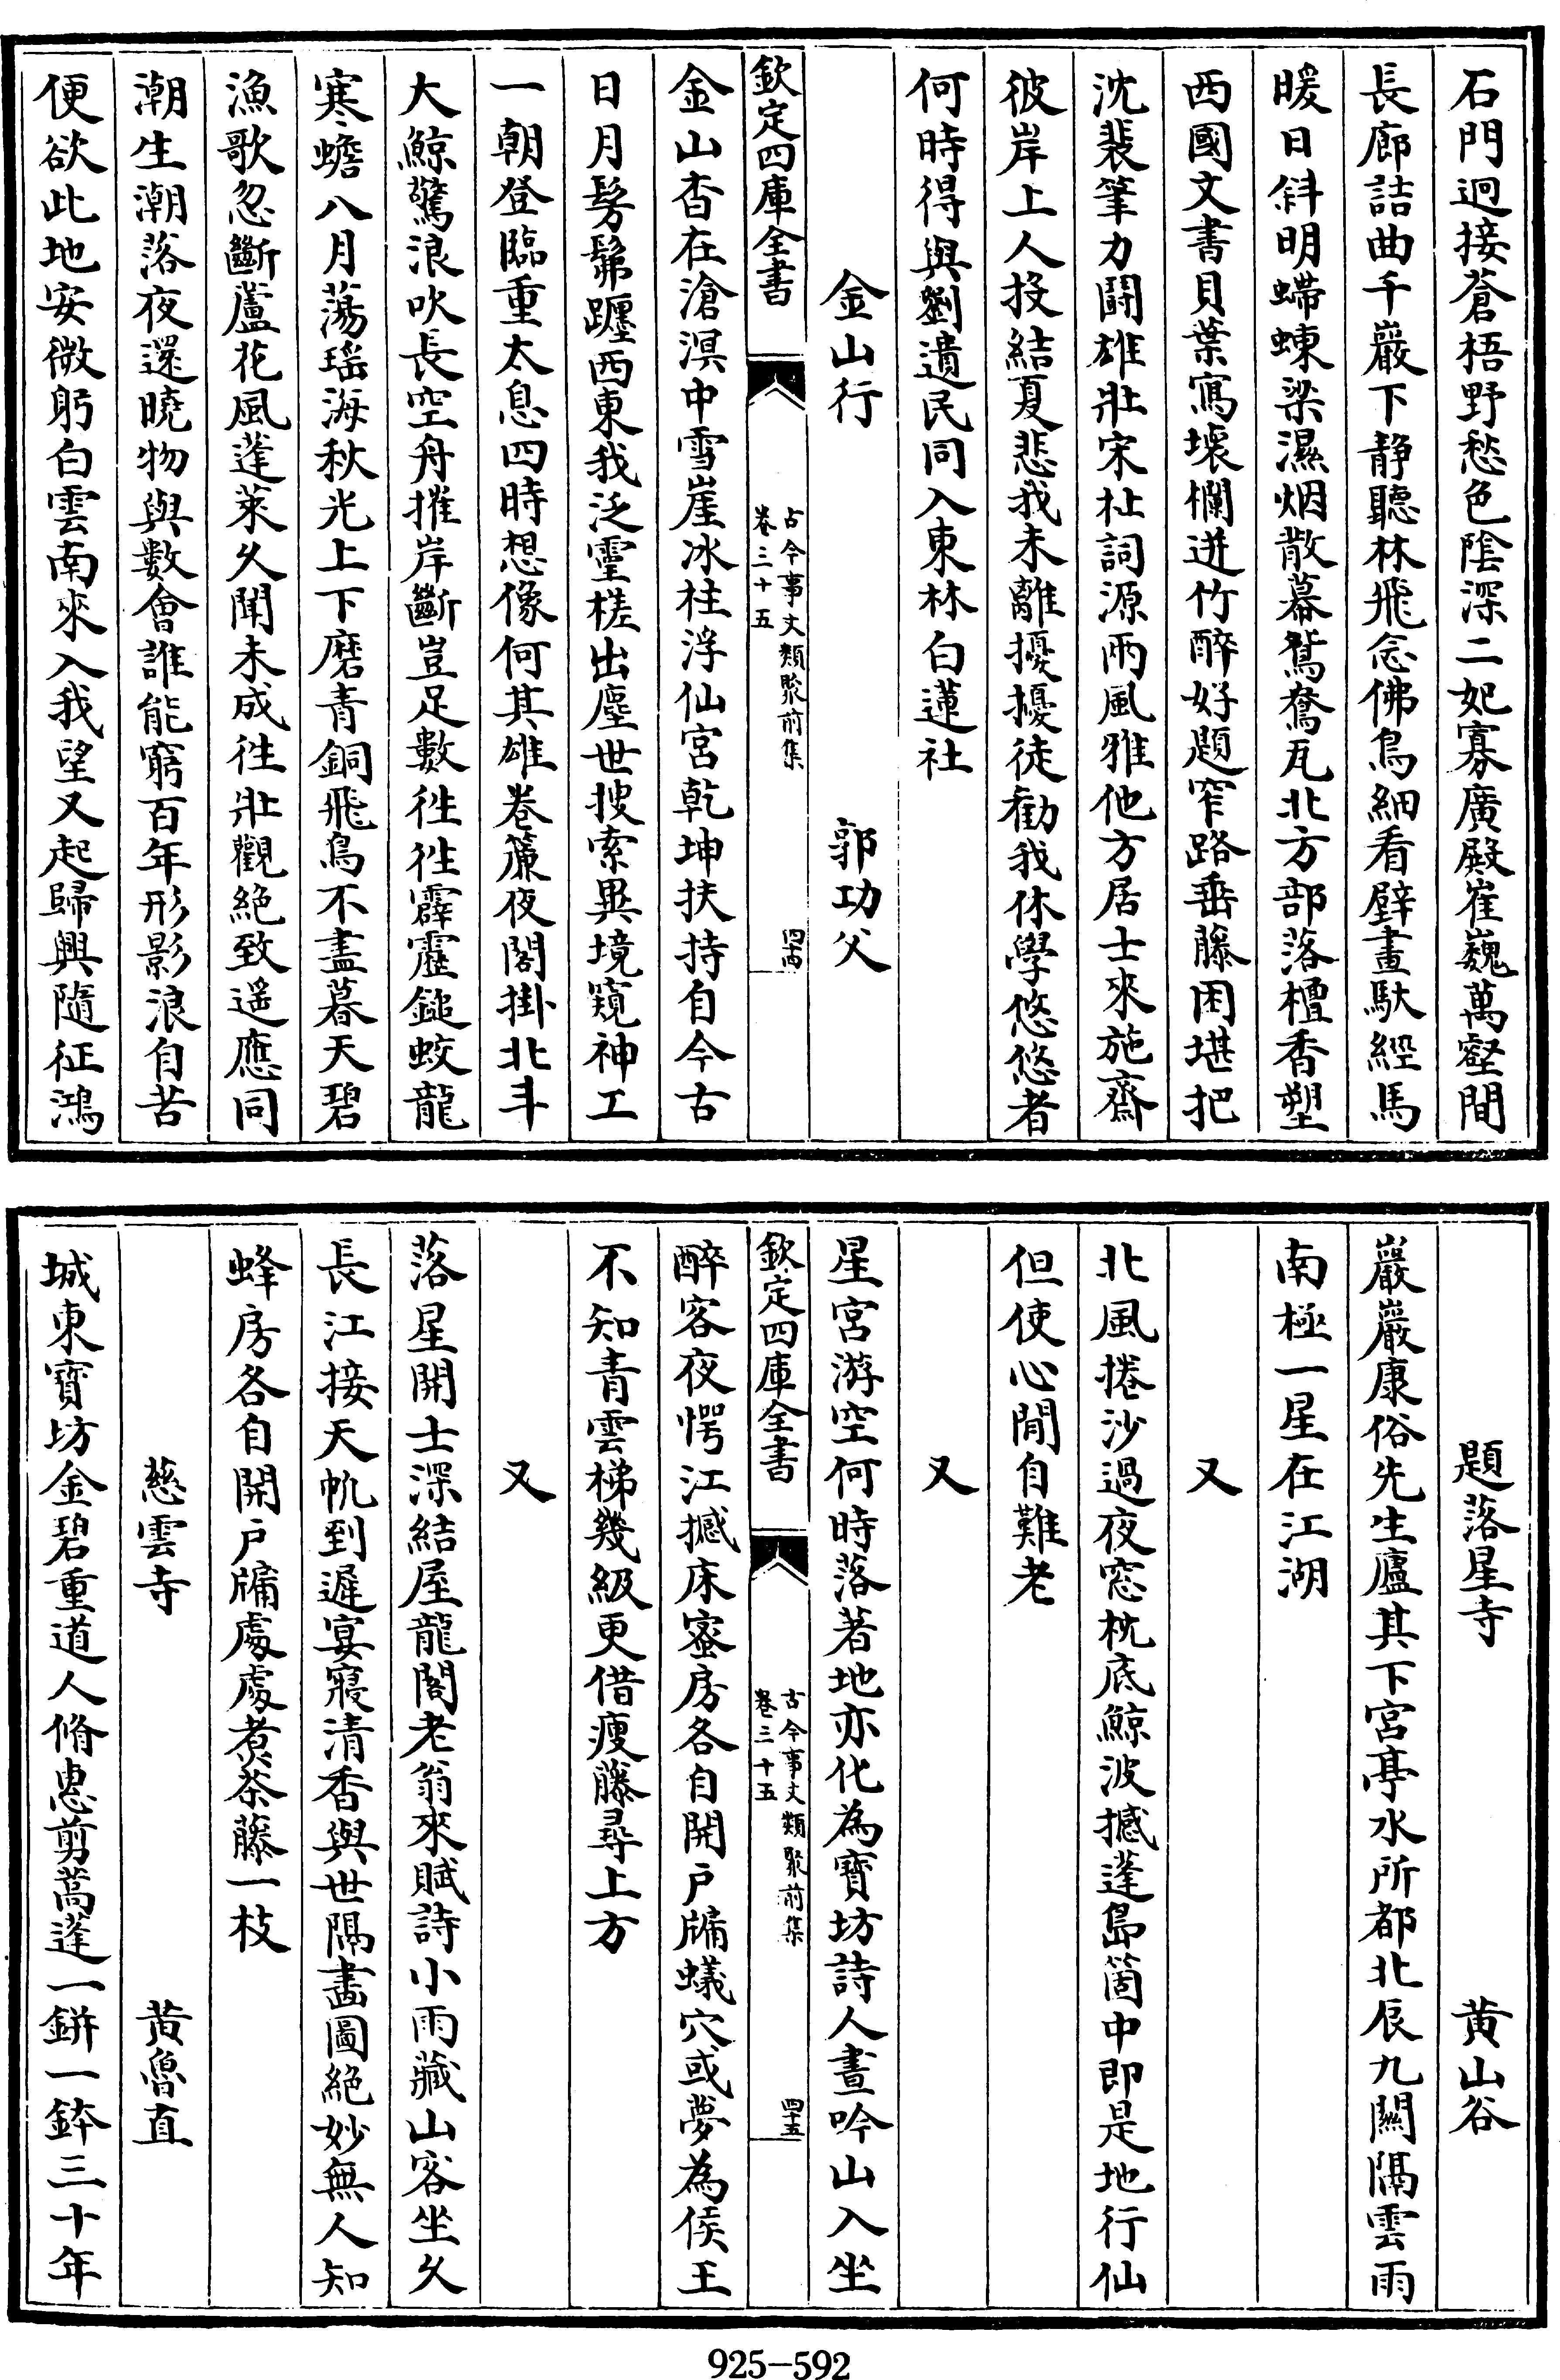 石門迥接蒼梧野愁色陰深二妃寡廣殿崔巍萬壑間
長廊詰曲千巖下静聽林飛念佛鳥細看壁畫馱經馬
暖日斜明螮蝀梁濕烟散幕鴛鴦瓦北方部落檀香塑
西國文書貝葉寫壞欄迸竹醉好題窄路垂藤困堪把
沈裴筆力鬪雄壯宋杜詞源兩風雅他方居士來施齋
彼岸上人投結夏悲我未離擾擾徒勸我休學悠悠者
何時得與劉遺民同入東林白蓮社
金山行 郭功父
欽定四庫全書 古今事文類聚前集 卷三十五 四十四
金山杳在滄溟中雪崖冰柱浮仙宮乾坤扶持自今古
日月髣髴躔西東我泛靈槎出塵世搜索異境窺神工
一朝登臨重太息四時想像何其雄卷簾夜閣掛北斗
大鯨驚浪吹長空舟摧岸斷豈足數徃徃霹靂鎚蛟龍
寒蟾八月蕩瑶海秋光上下磨青銅飛鳥不盡暮天碧
漁歌忽斷蘆花風蓬萊久聞未成徃壯觀絶致遥應同
潮生潮落夜還曉物與數會誰能窮百年形影浪自苦
便欲此地安微躬白雲南來入我望又起歸興隨征鴻
題落星寺 黄山谷
巖巖康俗先生廬其下宮亭水所都北辰九關隔雲雨
南極一星在江湖
又
北風捲沙過夜窓枕底鯨波撼蓬島箇中即是地行仙
但使心閒自難老
又
星宮游空何時落著地亦化為寶坊詩人晝吟山入坐
欽定四庫全書 古今事文類聚前集 卷三十五 四十五
醉客夜愕江撼床蜜房各自開戶牖蟻穴或夢為侯王
不知青雲梯幾級更借瘦藤尋上方
又
落星開士深結屋龍閣老翁來賦詩小雨藏山客坐久
長江接天帆到遲宴寢清香與世隔畵圖絶妙無人知
蜂房各自開戶牖處處煮茶藤一枝
慈雲寺 黄魯直
城東寶坊金碧重道人脩惠剪蒿蓬一鉼一鉢三十年
925-592